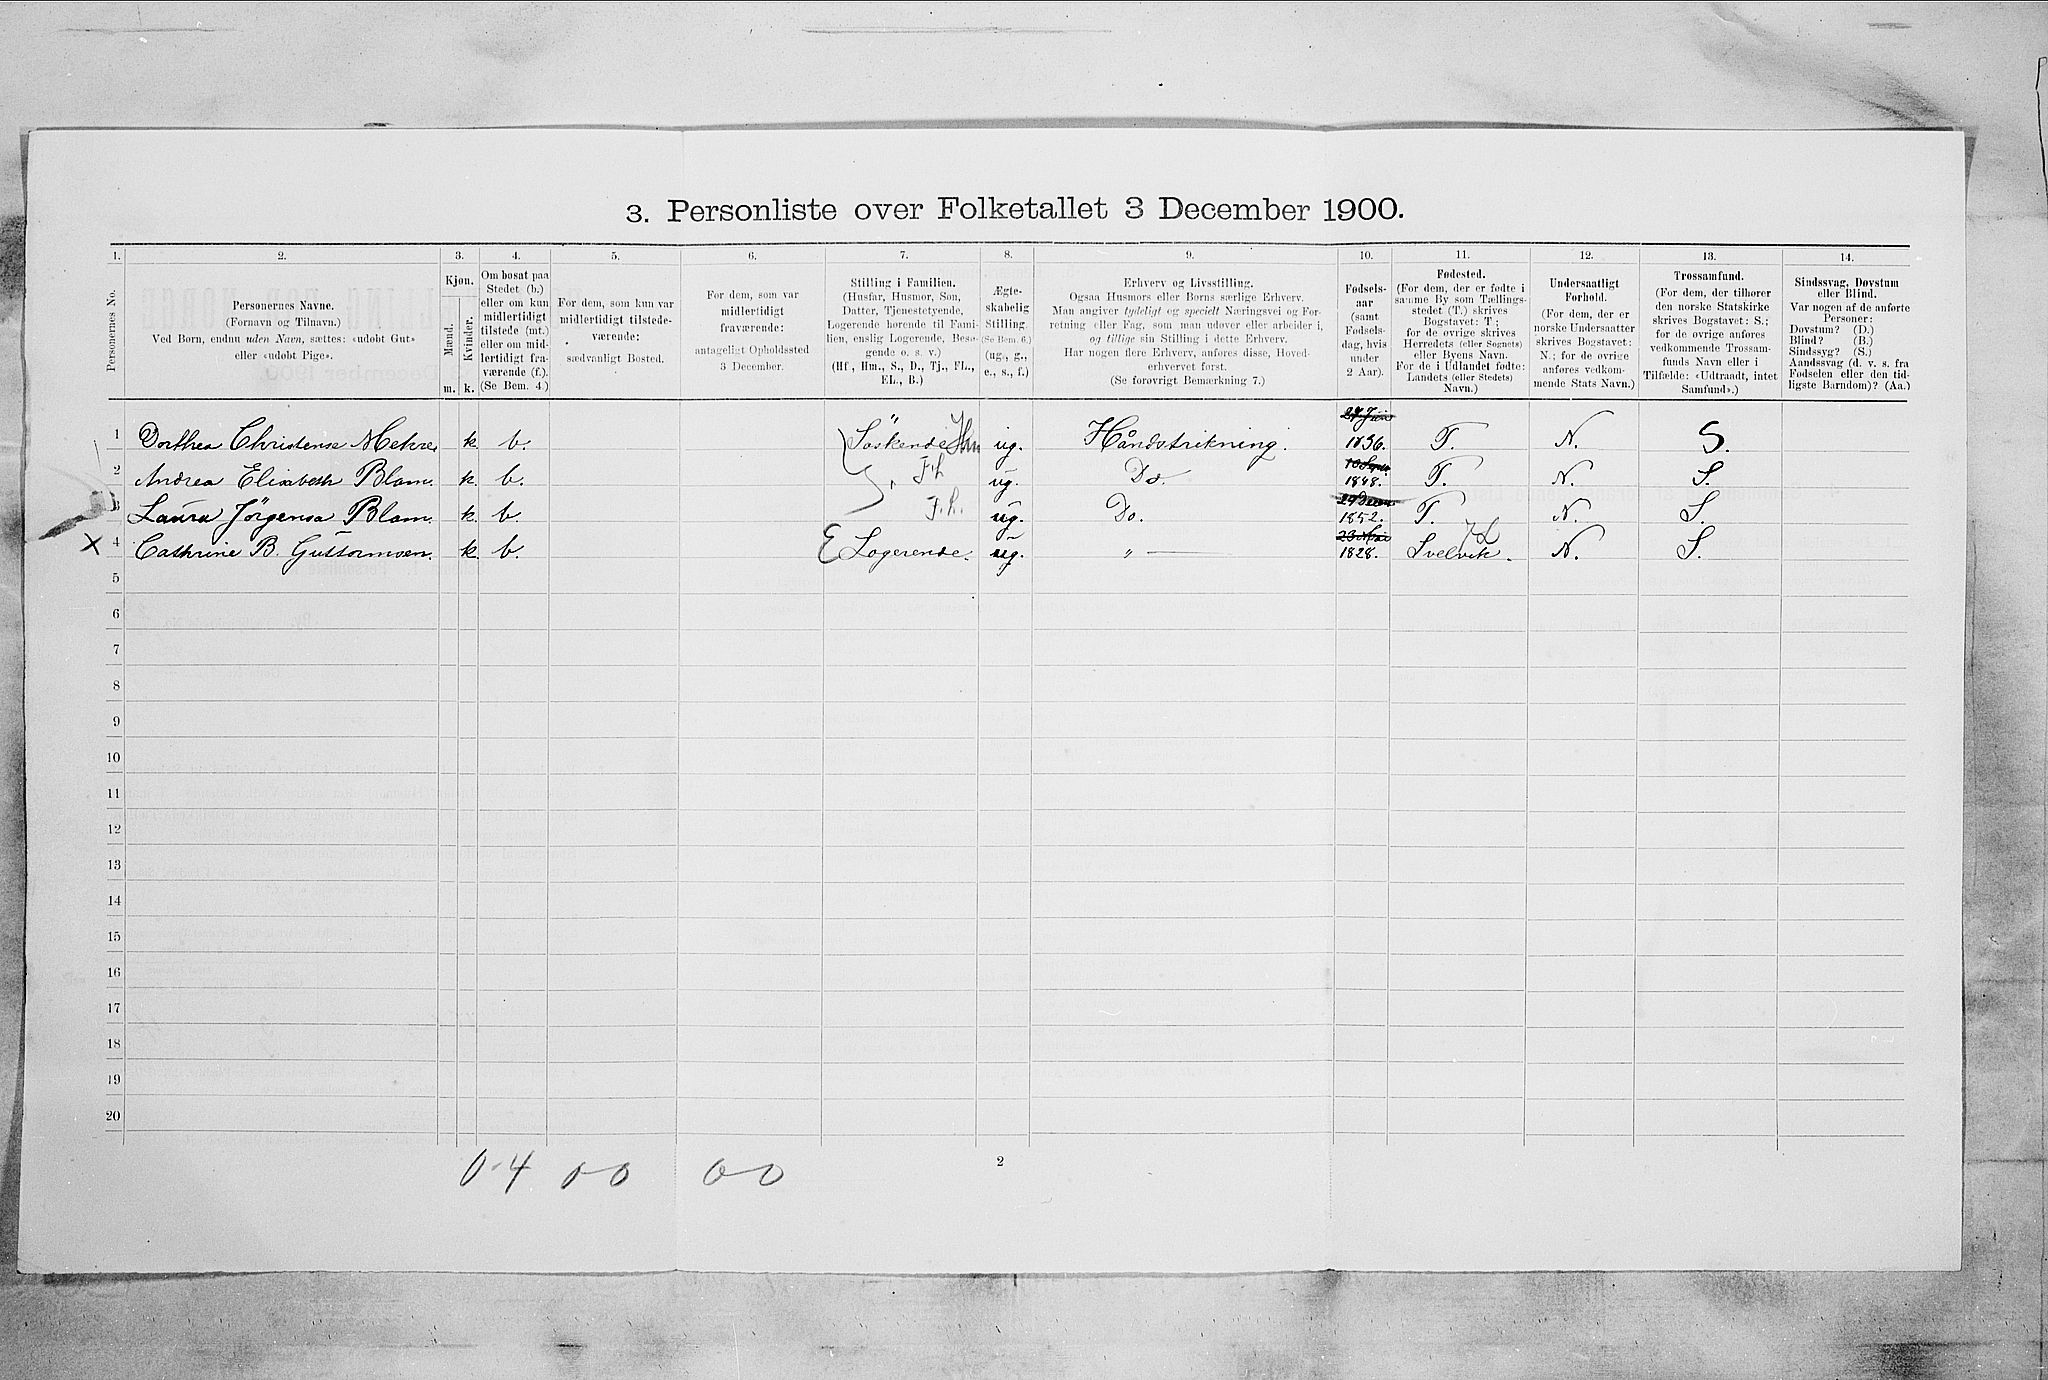 3. Personliste over Folketallet 3 December 1900.
1. 2. 3. 4. 5. 6. 7. 8. 9. 10. 11. 12. 13. 14.
Personernes No.
Personernes Navne.
(Fornavn og Tilnavn.)
Ved Børn, endnu uden Navn, sættes: «udøbt Gut»
eller «udøbt Pige».
Kjøn.
Mænd.
Kvinder.
m. k.
Om bosat paa
Stedet (b.)
eller om kun
midlertidigt
tilstede (mt.)
eller om mid-
lertidigt fra-
værende (f.).
(Se Bem. 4.)
For dem, som kun var
midlertidigt tilstede-
værende:
sædvanligt Bosted.
For dem, som var
midlertidigt
fraværende:
antageligt Opholdssted
3 December.
Stilling i Familien.
(Husfar, Husmor, Søn,
Datter, Tjenestetyende,
Logerende hørende til Fami-
lien, enslig Logerende, Besø-
gende o. s. v.)
(Hf., Hm., S., D., Tj., FL.,
EL., B.)
Ægte-
skabelig
Stilling.
(Se Bem. 6.)
(ug., g.,
e., s., f.)
Erhverv og Livsstilling.
Ogsaa Husmors eller Børns særlige Erhverv.
Man angiver tydeligt og specielt Næringsvei og For-
retning eller Fag, som man udøver eller arbeider i,
og tillige sin Stilling i dette Erhverv.
Har nogen flere Erhverv, anføres disse, Hoved-
erhvervet først.
(Se forøvrigt Bemærkning 7.)
Fødsels-
aar
(samt
Fødsels-
dag, hvis
under
2 Aar).
Fødested.
(For dem, der er fødte i
samme By som Tællings-
stedet (T.) skrives
Bogstavet: T;
for de øvrige skrives
Herredets (eller Sognets)
eller Byens Navn.
For de i Udlandet fødte:
Landets (eller Stedets)
Navn.)
Undersaatligt
Forhold.
(For dem, der er
norske Undersaatter
skrives Bogstavet:
N.; for de øvrige
anføres vedkom-
mende Stats Navn.)
Trossamfund.
(For dem, der tilhører
den norske Statskirke
skrives Bogstavet: S.;
for de øvrige anføres
vedkommende Trossam-
funds Navn eller i
Tilfælde: «Udtraadt, intet
Samfund».)
Sindssvag, Døvstum
eller Blind.
Var nogen af de anførte
Personer:
Døvstum? (D.)
Blind? (B.)
Sindssyg? (S.)
Aandssvag (d. v. s. fra
Fødselen eller den tid-
ligste Barndom)? (Aa.)
1 Dorthea Christense k. b. Søskende Hm ug. Håndstrikning. 1836. T. N. S.
2 Andrea Elisabeth Blom. k. b. F.L. ug. Do. 10 Sept. 1848. T. N. S.
3 Laura Jørgensa Blom. k. b. F.L. ug. Do. 1852. T. N. S.
X 4 Cathrine B. Guttormsen. k. b. E Logerende. ug. " — 23 Mai 1828. Svelvik. N. S.
5
6
7
8
9
10
11
12
13
14
15
16
17
18
19
20
0-4 0-0 0-0
2